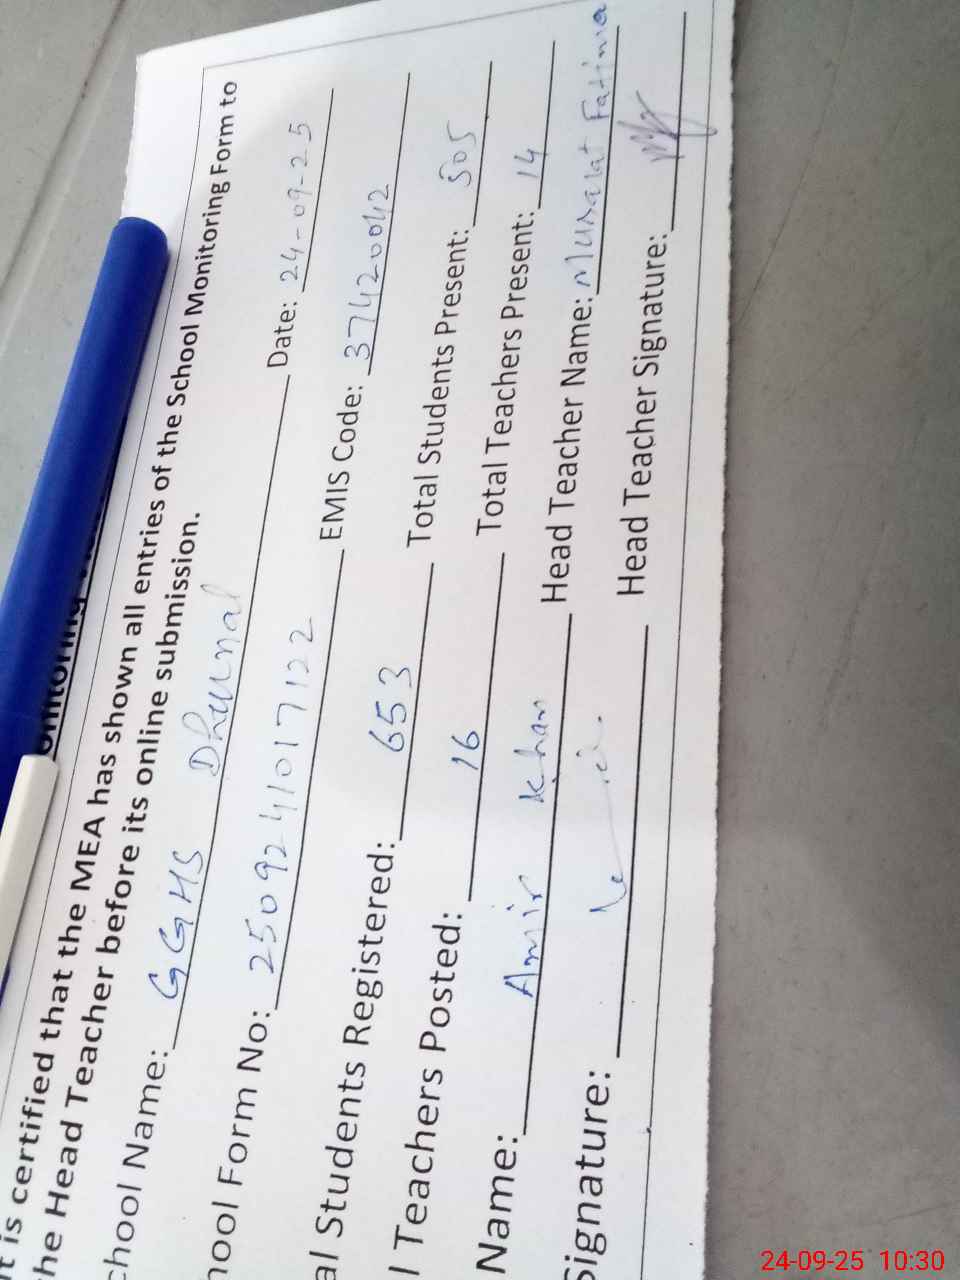 onitoring
t is certified that the MEA has shown all entries of the School Monitoring Form to
he Head Teacher before its online submission.
chool Name: GGHS Dhurnal Date: 24-09-25
hool Form No: 2509241017122 EMIS Code: 37420042
al Students Registered: 653 Total Students Present: 505
l Teachers Posted: 16 Total Teachers Present: 14
Name: Amir Khan Head Teacher Name: Musarat Fatima
Signature: Head Teacher Signature:
24-09-25 10:30